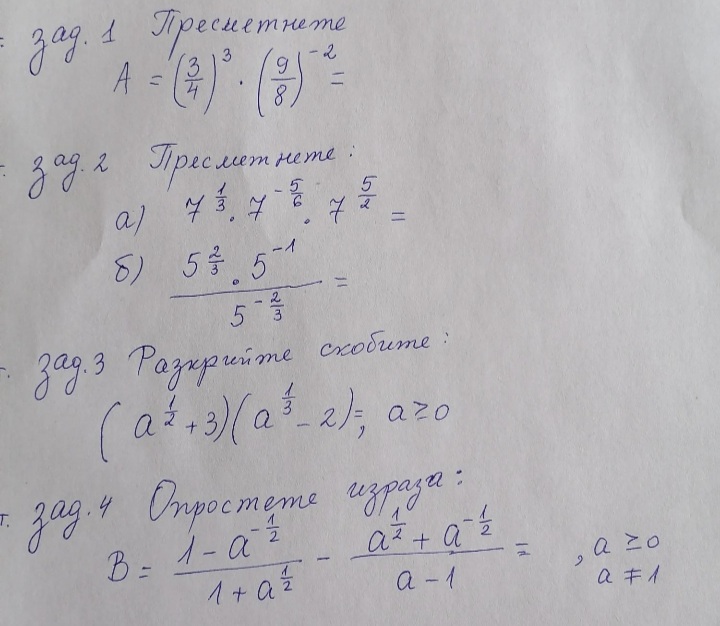 зад. 1 Пресметнете
A = (3/4)^3 · (9/8)^-2 =
зад. 2 Пресметнете:
а) 7^(1/3) · 7^(-5/6) · 7^(5/2) =
б) (5^(2/3) · 5^-1) / 5^(-2/3) =
зад. 3 Разкрийте скобите:
(a^(1/2) + 3)(a^(1/3) - 2) =, a ≥ 0
т. зад. 4 Опростете израза:
B = (1 - a^(-1/2)) / (1 + a^(1/2)) - (a^(1/2) + a^(-1/2)) / (a - 1) = , a ≥ 0
a ≠ 1